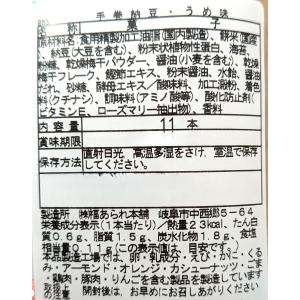 手巻納豆・うめ味
菓子
原材料名 食用精製加工油脂(国内製造)、餅米(国産)
、納豆(大豆を含む)、粉末状植物性蛋白、海苔、
粉糖、乾燥梅干パウダー、醤油(小麦を含む)、乾燥
梅干フレーク、鰹節エキス、粉末醤油、水飴、醤油
だれ、砂糖、酵母エキス/調味料、加工澱粉、着色
料(クチナシ)、調味料(アミノ酸等)、酸化防止剤(
ビタミンE、ローズマリー抽出物)、香料
内容量 11本
賞味期限
保存方法 直射日光、高温多湿をさけ、室温で保存
してください。
製造所 ㈱福あられ本舗 岐阜市中西郷5-64
栄養成分表示(1本当たり)/熱量23kcal、たん白
質0.6g、脂質1.5g、炭水化物1.8g、食塩
相当量0.11g(この表示値は、目安です。)
本品製造工場では、卵・乳成分・えび・かに・くる
み・アーモンド・オレンジ・カシューナッツ・ごま
・鶏肉・豚肉・りんごを含む製品を製造しています
開封後は、お早めにお召し上がりください。